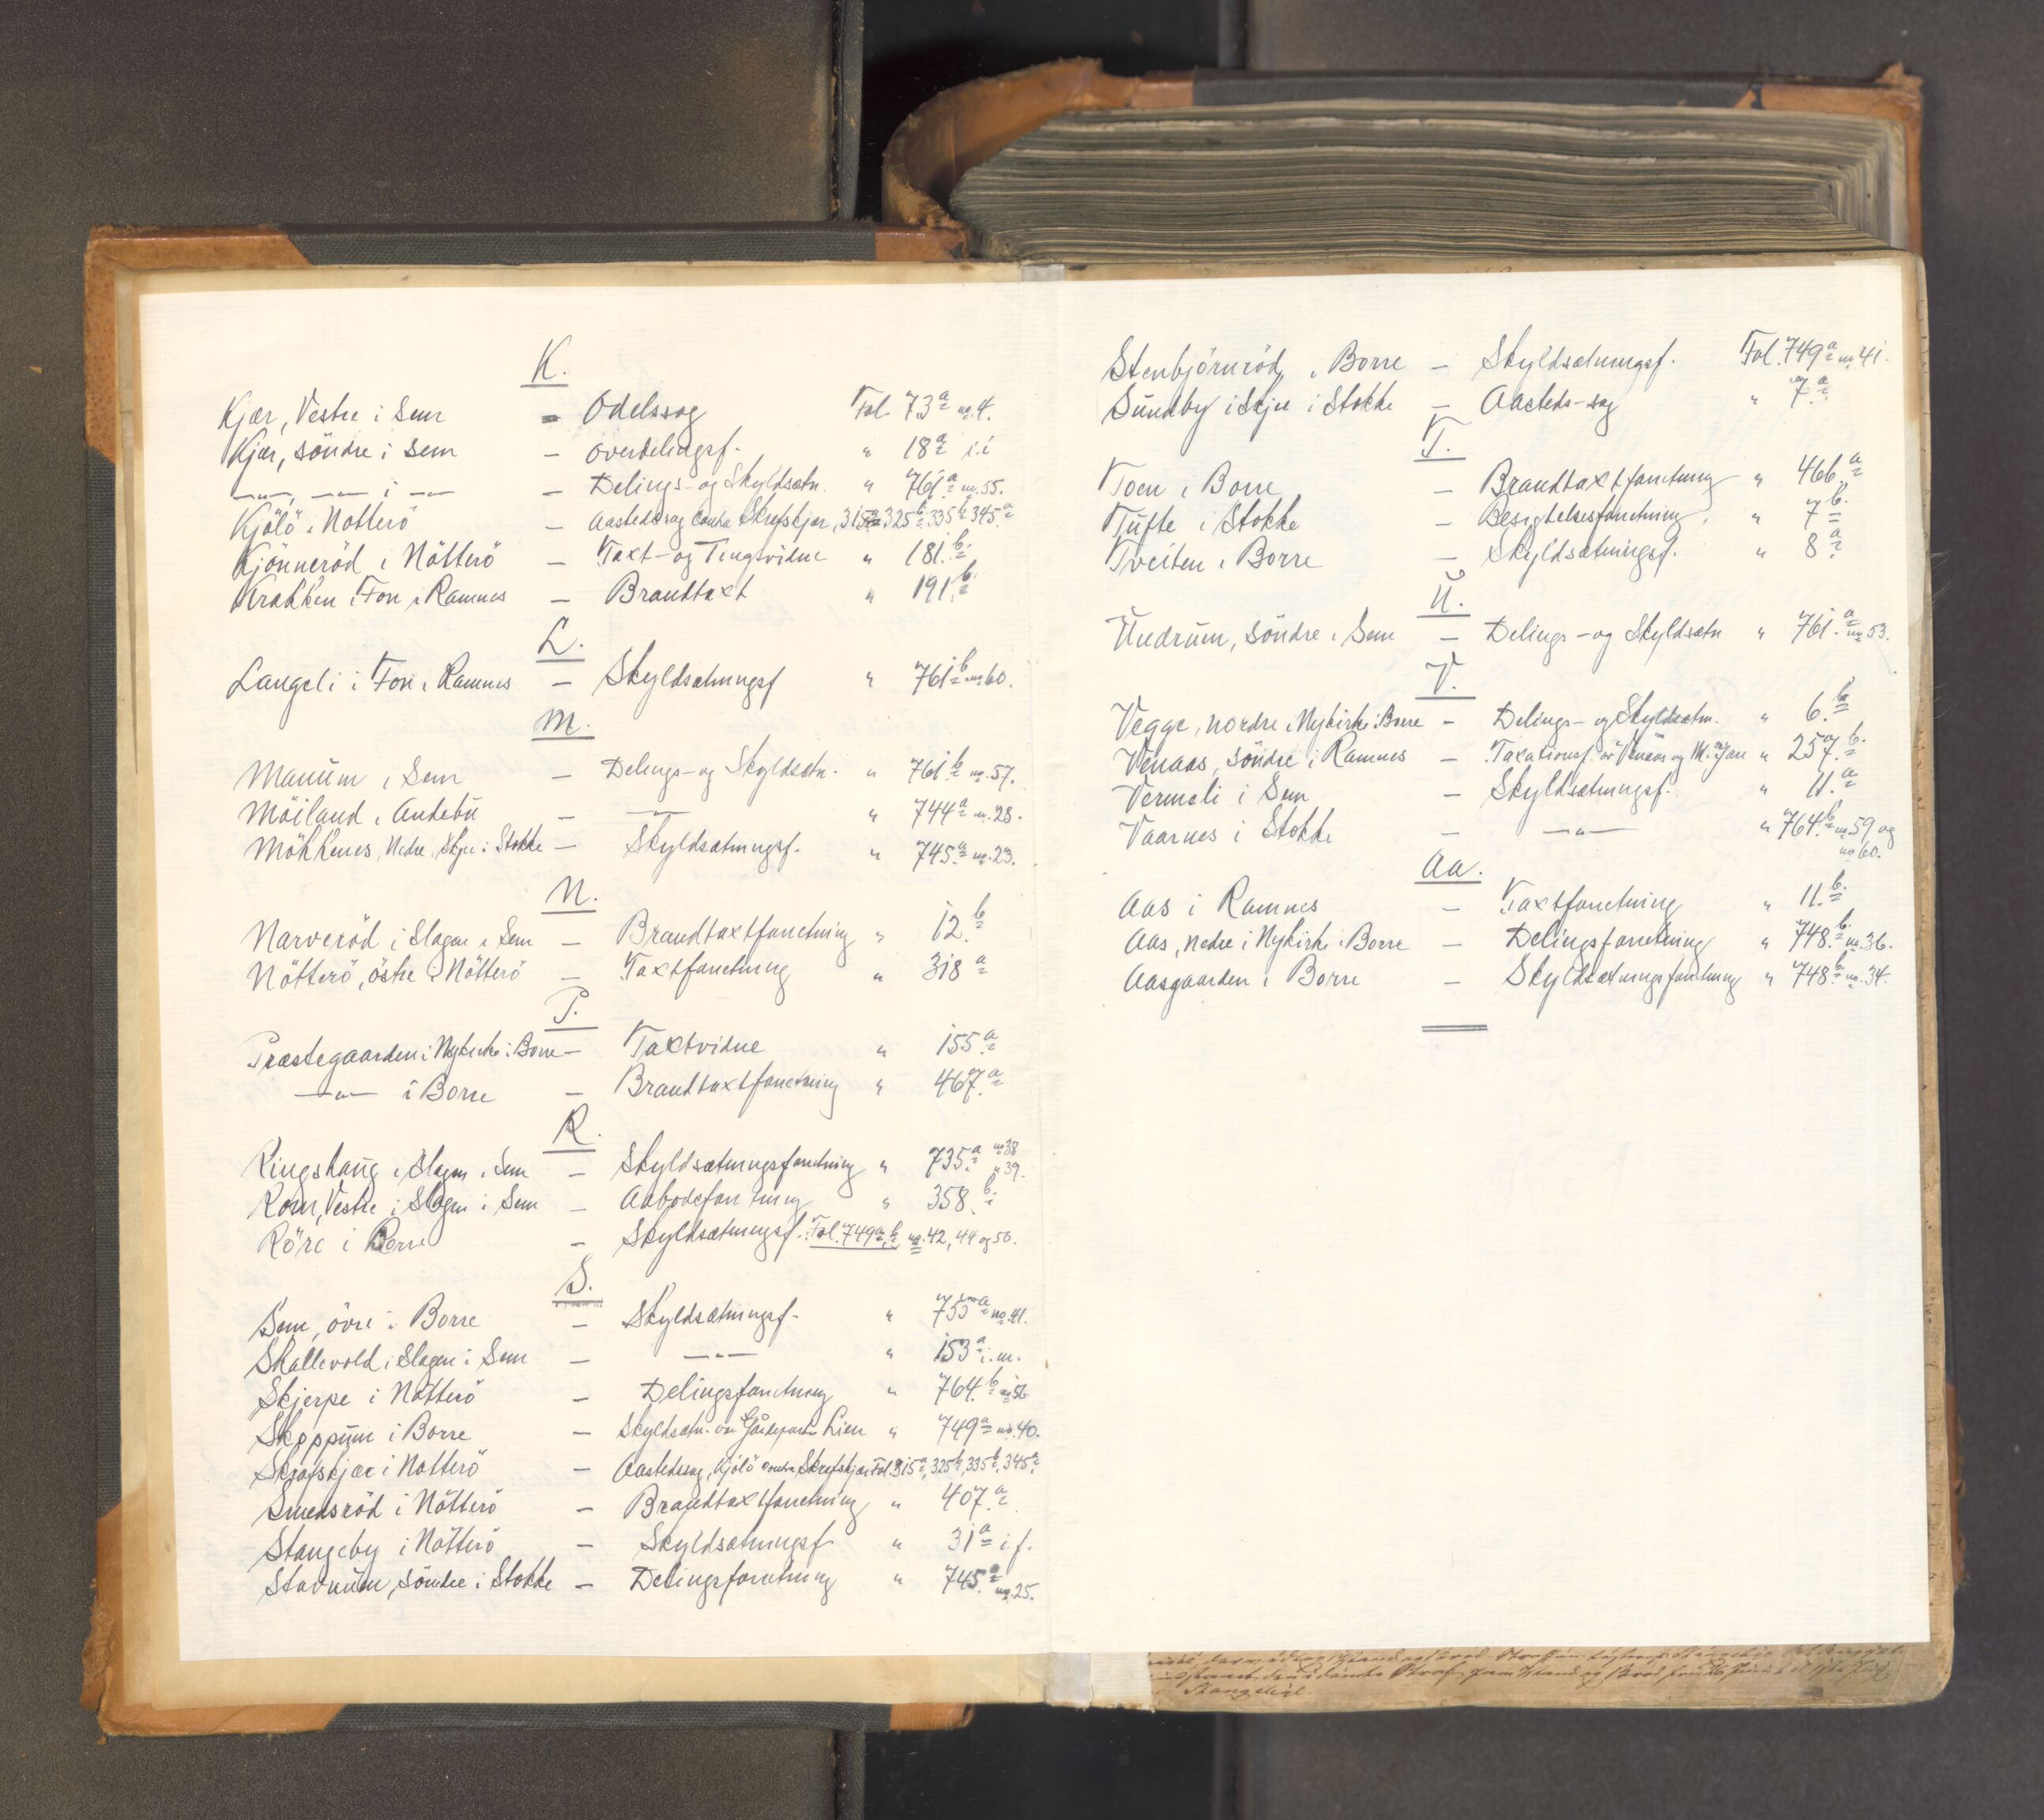 K.
Kjær, Vestre i Sem - Odelssag Fol. 73a no. 4.
Kjær, söndre i Sem - Overdelingsf. " 18a i.i
—"—, —"— i —"— - Delings- og Skyldsætn. " 761a no. 55.
Kjölö i Nötterö - Aastedssag contra Skrefskjær, 315a 325b 335b 345a
Kjönneröd i Nötterö - Taxt- og Tingsvidne " 181.b
Krakken i Fon i Ramnes - Brandtaxt " 191.b
L.
Langeli i Fon i Ramnes - Skyldsætningsf " 761b no. 60.
M.
Manum i Sem - Delings- og Skyldsætn. " 761b no. 57.
Möiland i Andebu - —"— " 744a no. 28.
Mökkenes, Nedre, Skje i Stokke - Skyldsætningsf. " 745.a no. 23.
N.
Narveröd i Slagen i Sem - Brandtaxtforretning " 12.b
Nötterö, östre i Nötterö - Taxtforretning " 318a
P.
Præstegaarden i Nykirke i Borre - Taxtvidne " 155.a
—"— i Borre - Brandtaxtforretning " 467.a
R.
Ringshaug i Slagen i Sem - Skyldsætningsforretning " 735.a no 38 " 39.
Rom, Vestre i Slagen i Sem - Aabodsforretning " 358.b
Röre i Borre - Skyldsætningsf. Fol. 749a, b no. 42, 44 og 50.
S.
Sem, övre i Borre - Skyldsætningsf. " 755a no. 41.
Skallevold i Slagen i Sem - —"— " 153a i.m.
Skjerpe i Nötterö - Delingsforretning " 764.b no 56
Skoppum i Borre - Skyldsætn. over Lien " 749a no. 40.
Skrafskjær i Nötterö - Aastedssag, Kjölö contra Skrefskjær Fol. 315a, 325b, 335b, 345a.
Smedsröd i Nötterö - Brandtaxtforretning " 407.a
Stangeby i Nötterö - Skyldsætningsf " 31a i.f.
Stavnum, söndre i Stokke - Delingsforretning " 745.a no. 25.
Stenbjörnröd i Borre - Skyldsætningsf. Fol. 749a no. 41.
Sundby i Skje i Stokke - Aasteds-sag " 7a
T.
Toen i Borre - Brandtaxtforretning " 466.a
Tufte i Stokke - Besigtelsesforretning " 7b.
Tveiten i Borre - Skyldsætningsf. " 8a
U.
Undrum, söndre i Sem - Delings- og Skyldsætn " 761.a no 53.
V.
Vegge, nordre i Nykirke i Borre - Delings- og Skyldsætn. " 6.b
Venaas, söndre i Ramnes - Taxationsf. Venaas og " 257.b
Vermeli i Sem - Skyldsætningsf. " 11.a
Vaarnes i Stokke - —"— " 764.b no 59 og
no 60.
Aa.
Aas i Ramnes - Taxtforretning " 11.b
Aas, nedre i Nykirke i Borre - Delingsforretning " 748.b no. 36.
Aasgaarden i Borre - Skyldsætningsforretning " 748.b no. 34.